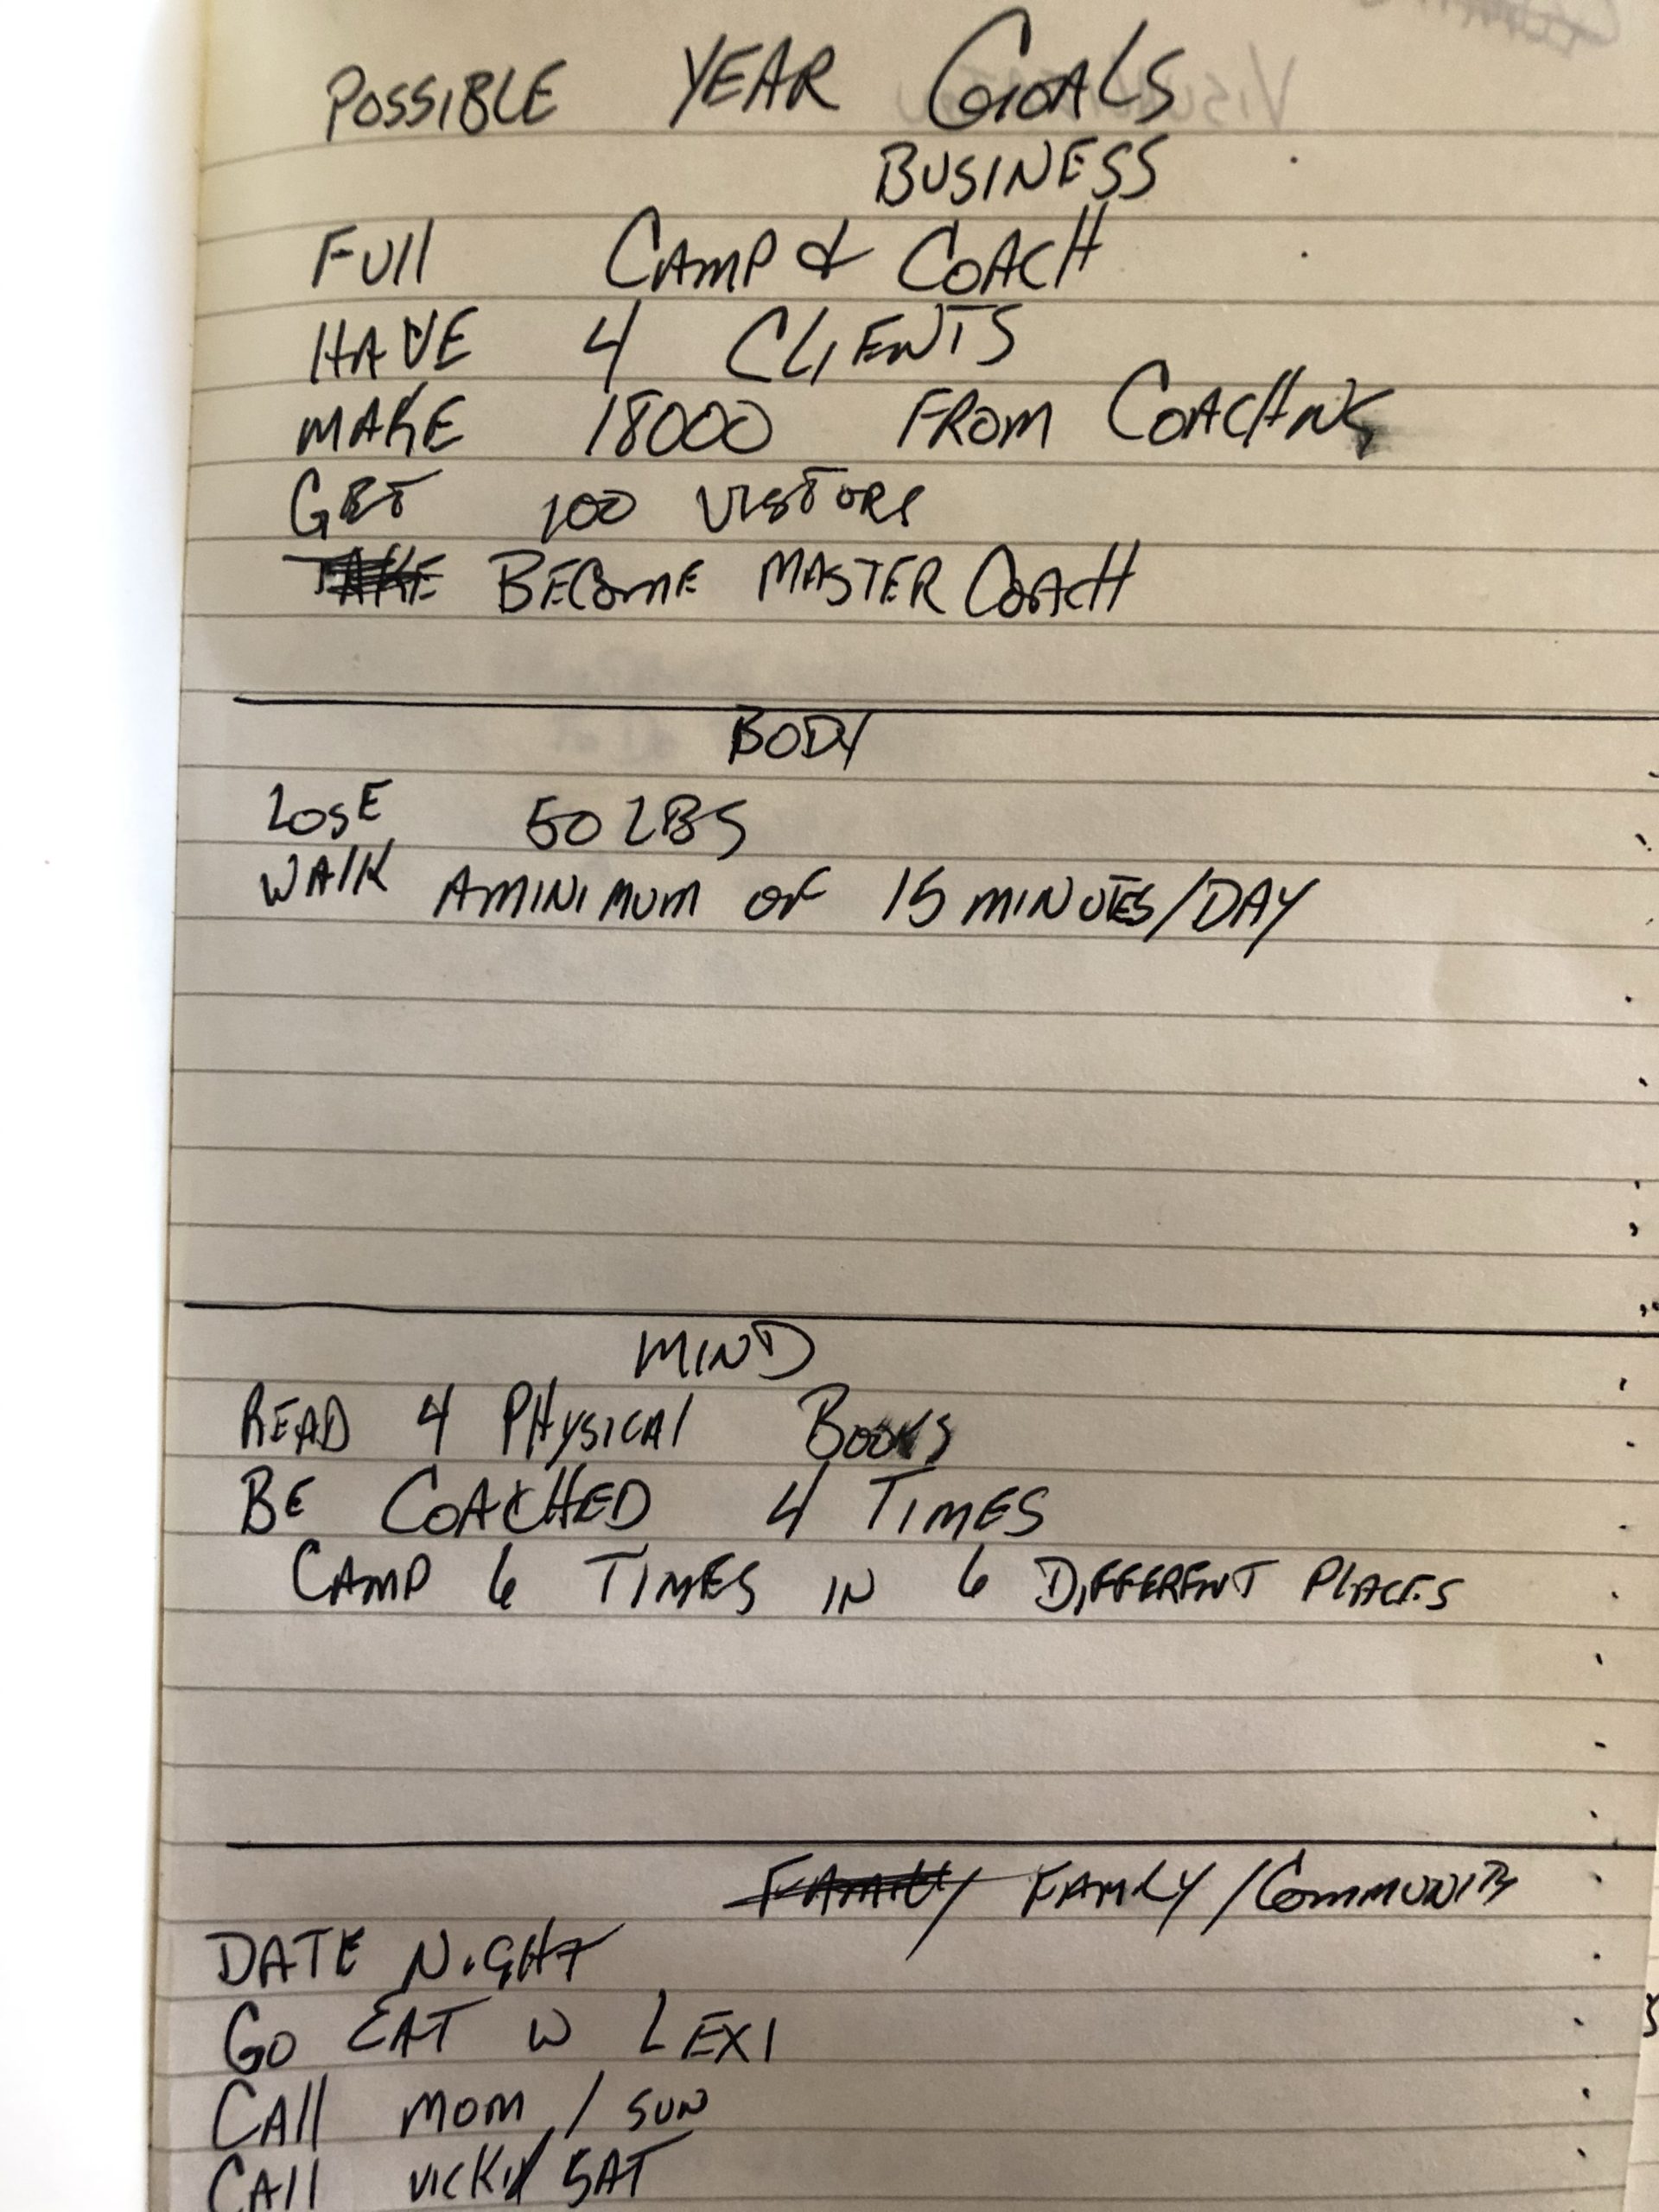 POSSIBLE YEAR GOALS
BUSINESS
FUll CAMP & COACH
HAVE 4 CLIENTS
MAKE 18000 FROM COACHNG
GET 100 VISTORS
TAKE BECOME MASTER COACH
BODY
LOSE 50 LBS
WALK A MINIMUM OF 15 MINUTES/DAY
MIND
READ 4 PHYSICAL BOOKS
BE COACHED 4 TIMES
CAMP 6 TIMES IN 6 DIFFERENT PLACES
FAMILY FAMILY/COMMUNITY
DATE NIGHT
GO EAT W LEXI
CALL MOM / SUN
CALL VICKI/ SAT